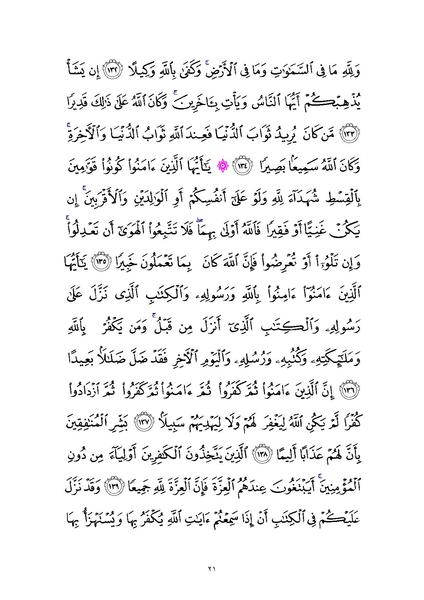 وَلِلَّهِ مَا فِى ٱلسَّمَٰوَٰتِ وَمَا فِى ٱلْأَرْضِ ۚ وَكَفَىٰ بِٱللَّهِ وَكِيلًا ١٣٢ إِن يَشَأْ
يُذْهِبْكُمْ أَيُّهَا ٱلنَّاسُ وَيَأْتِ بِـَٔاخَرِينَ ۚ وَكَانَ ٱللَّهُ عَلَىٰ ذَٰلِكَ قَدِيرًا
١٣٣ مَّن كَانَ يُرِيدُ ثَوَابَ ٱلدُّنْيَا فَعِندَ ٱللَّهِ ثَوَابُ ٱلدُّنْيَا وَٱلْءَاخِرَةِ ۚ
وَكَانَ ٱللَّهُ سَمِيعًۢا بَصِيرًا ١٣٤ ۞ يَٰٓأَيُّهَا ٱلَّذِينَ ءَامَنُوا۟ كُونُوا۟ قَوَّٰمِينَ
بِٱلْقِسْطِ شُهَدَآءَ لِلَّهِ وَلَوْ عَلَىٰٓ أَنفُسِكُمْ أَوِ ٱلْوَٰلِدَيْنِ وَٱلْأَقْرَبِينَ ۚ إِن
يَكُنْ غَنِيًّا أَوْ فَقِيرًا فَٱللَّهُ أَوْلَىٰ بِهِمَا ۖ فَلَا تَتَّبِعُوا۟ ٱلْهَوَىٰٓ أَن تَعْدِلُوا۟ ۚ
وَإِن تَلْوُۥٓا۟ أَوْ تُعْرِضُوا۟ فَإِنَّ ٱللَّهَ كَانَ بِمَا تَعْمَلُونَ خَبِيرًا ١٣٥ يَٰٓأَيُّهَا
ٱلَّذِينَ ءَامَنُوٓا۟ ءَامِنُوا۟ بِٱللَّهِ وَرَسُولِهِۦ وَٱلْكِتَٰبِ ٱلَّذِى نَزَّلَ عَلَىٰ
رَسُولِهِۦ وَٱلْكِتَٰبِ ٱلَّذِىٓ أَنزَلَ مِن قَبْلُ ۚ وَمَن يَكْفُرْ بِٱللَّهِ
وَمَلَٰٓئِكَتِهِۦ وَكُتُبِهِۦ وَرُسُلِهِۦ وَٱلْيَوْمِ ٱلْءَاخِرِ فَقَدْ ضَلَّ ضَلَٰلًۢا بَعِيدًا
١٣٦ إِنَّ ٱلَّذِينَ ءَامَنُوا۟ ثُمَّ كَفَرُوا۟ ثُمَّ ءَامَنُوا۟ ثُمَّ كَفَرُوا۟ ثُمَّ ٱزْدَادُوا۟
كُفْرًا لَّمْ يَكُنِ ٱللَّهُ لِيَغْفِرَ لَهُمْ وَلَا لِيَهْدِيَهُمْ سَبِيلًۢا ١٣٧ بَشِّرِ ٱلْمُنَٰفِقِينَ
بِأَنَّ لَهُمْ عَذَابًا أَلِيمًا ١٣٨ ٱلَّذِينَ يَتَّخِذُونَ ٱلْكَٰفِرِينَ أَوْلِيَآءَ مِن دُونِ
ٱلْمُؤْمِنِينَ ۚ أَيَبْتَغُونَ عِندَهُمُ ٱلْعِزَّةَ فَإِنَّ ٱلْعِزَّةَ لِلَّهِ جَمِيعًا ١٣٩ وَقَدْ نَزَّلَ
عَلَيْكُمْ فِى ٱلْكِتَٰبِ أَنْ إِذَا سَمِعْتُمْ ءَايَٰتِ ٱللَّهِ يُكْفَرُ بِهَا وَيُسْتَهْزَأُ بِهَا
٢١